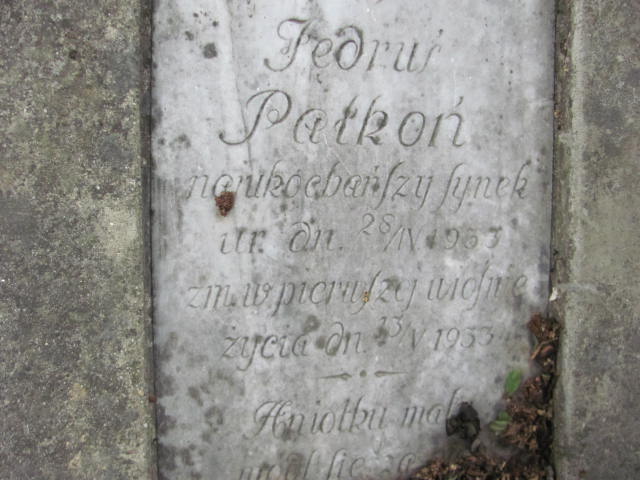 Jędruś
Pałkoń
najukochańszy synek
ur. dn. 28/IV 1933
zm. w pierwszej wiośnie
życia dn. 13/V 1933
Aniołku mały